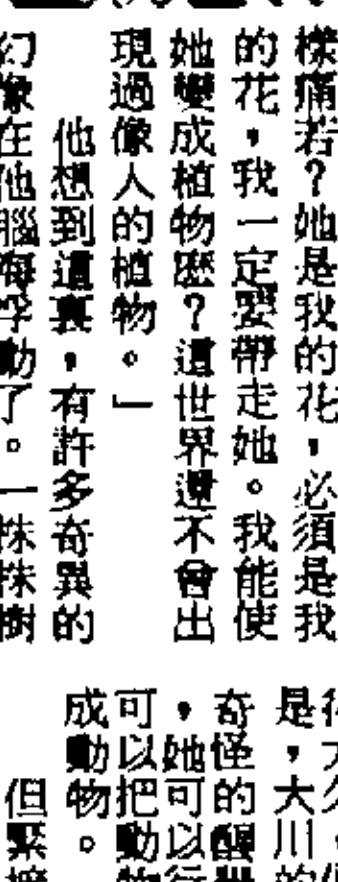 樣痛若？她是我的花，必須是我
的花，我一定要帶走她。我能使
她變成植物麼？這世界還不會出
現過像人的植物。」
他想到這裏，有許多奇異的
幻像在他腦海浮動了。一株株樹
是，大川的
奇怪的醒
，她可以行
可以把動物
成動物。
但緊